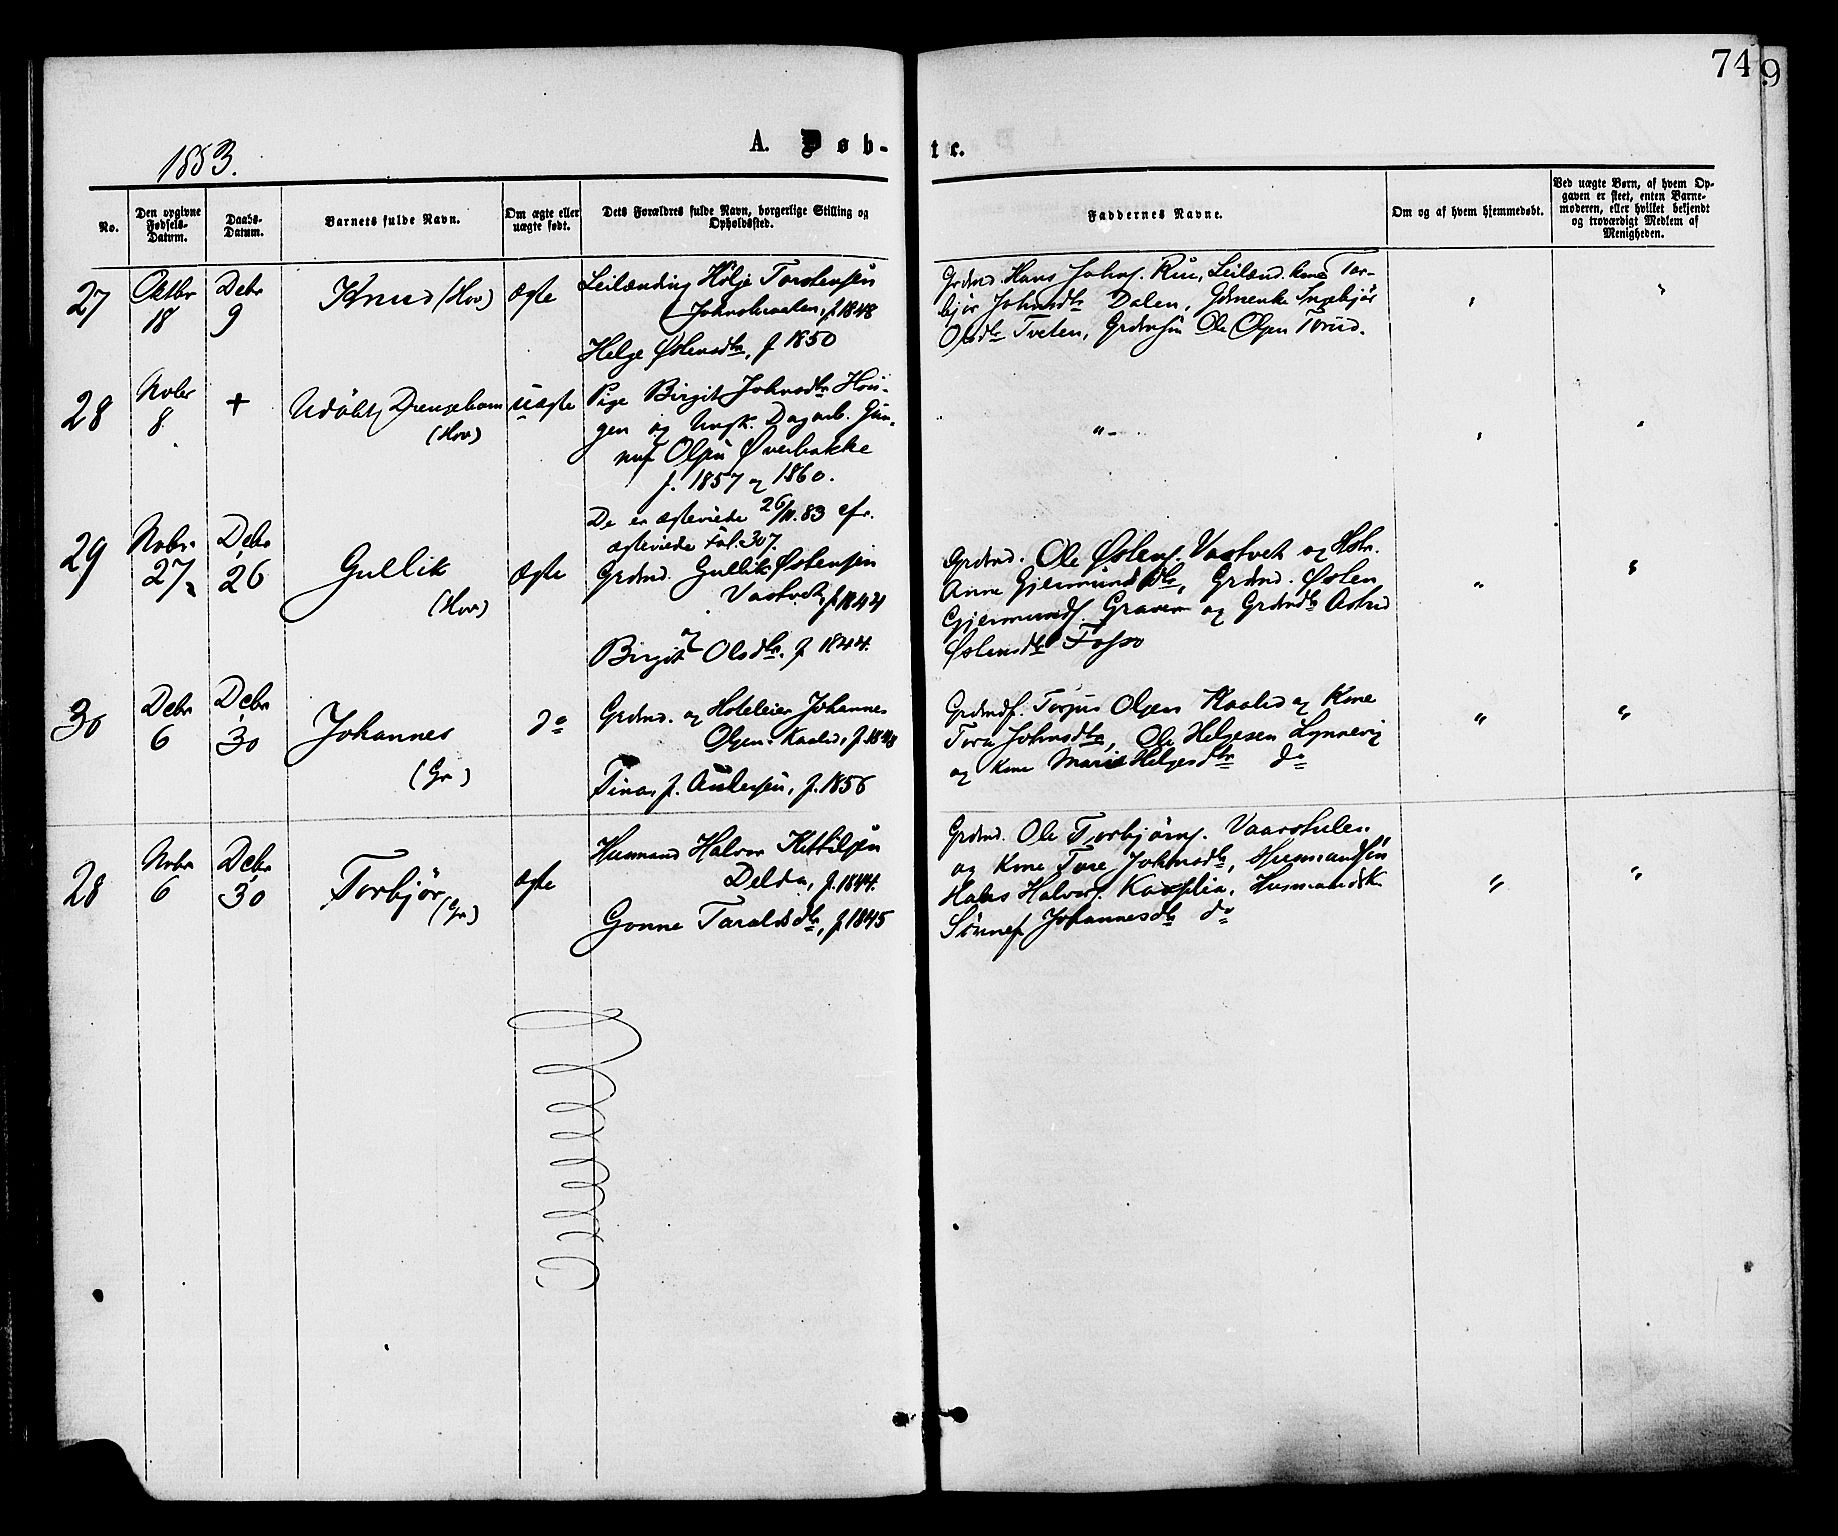 74
9
1883.
A. Døb-
te.
No.
Den opgivne Fødsels-Datum.
Daabs-Datum.
Barnets fulde Navn.
Om ægte eller uægte født.
Dets Forældres fulde Navn, borgerlige Stilling og Opholdssted.
Faddernes Navne.
Om og af hvem hjemmedøbt.
Ved uægte Børn, af hvem Op-
gaven er skeet, enten Barne-
moderen, eller hvilket bekjendt
og troværdigt Medlem af
Menigheden.
27
Oktbr 18
Debr 9
Knud (Hov)
ægte
Leilænding Hølje Torstensen
f. 1848
Helge Østensdtr, f 1850
Grdmd. Hans Johns. Rui, Leilænd. kone Tor-
bjør Johnsdtr Dalen, Ingebjør
Olsdtr Tveten, Grdmsøn Ole Olsen
28
Nobr 8
+
Udøbt Drengebarn
(Hov)
uægte
Pige Birgit Johnsdtr Hou-
gen og Ungk. Dagarb. Gun-
nuf Olsen Øverbakke
f. 1857 og 1860.
De er ægteviede 26/11.83 cfr.
ægteviede Fol. 307.
29
Nobr. 27
Debr 26
Gullik
(Hov)
ægte
Grdmd. Gullik Østensen
Vastveit, f 1842
Birgit Olsdtr. f 1844.
Grdmd. Ole Østens. Vastveit og Hstr.
Anne Gjermundsdtr, Grdmd. Østen
Gjermunds. Graver og Grdmdtr Astrid
Østensdtr Fosso
30
Debr 6
Debr 30
Johannes
(Gr)
do
Grdmd. og Hoteleier Johannes
Olsen Kaalid, f. 1848
Tina, f. Andersen, f. 1856
Grdmds. Torjus Olsen Kaalid og Kone
Tora Johnsdtr, Ole Helgesen Lynnevig
og Kone Marie Helgesdtr do
28
Nobr 6
Debr 30
Torbjør
(Gr)
ægte
Husmand Halvor Kittilsen
Delda, f. 1844.
Gonne Taraldsdtr, f 1845
Grdmd. Ole Torbjørns. Vaarstulen
og Kone Tore Johnsdtr, Husmandsøn
Hans Halvors. Husmandsk.
Johannesdtr do